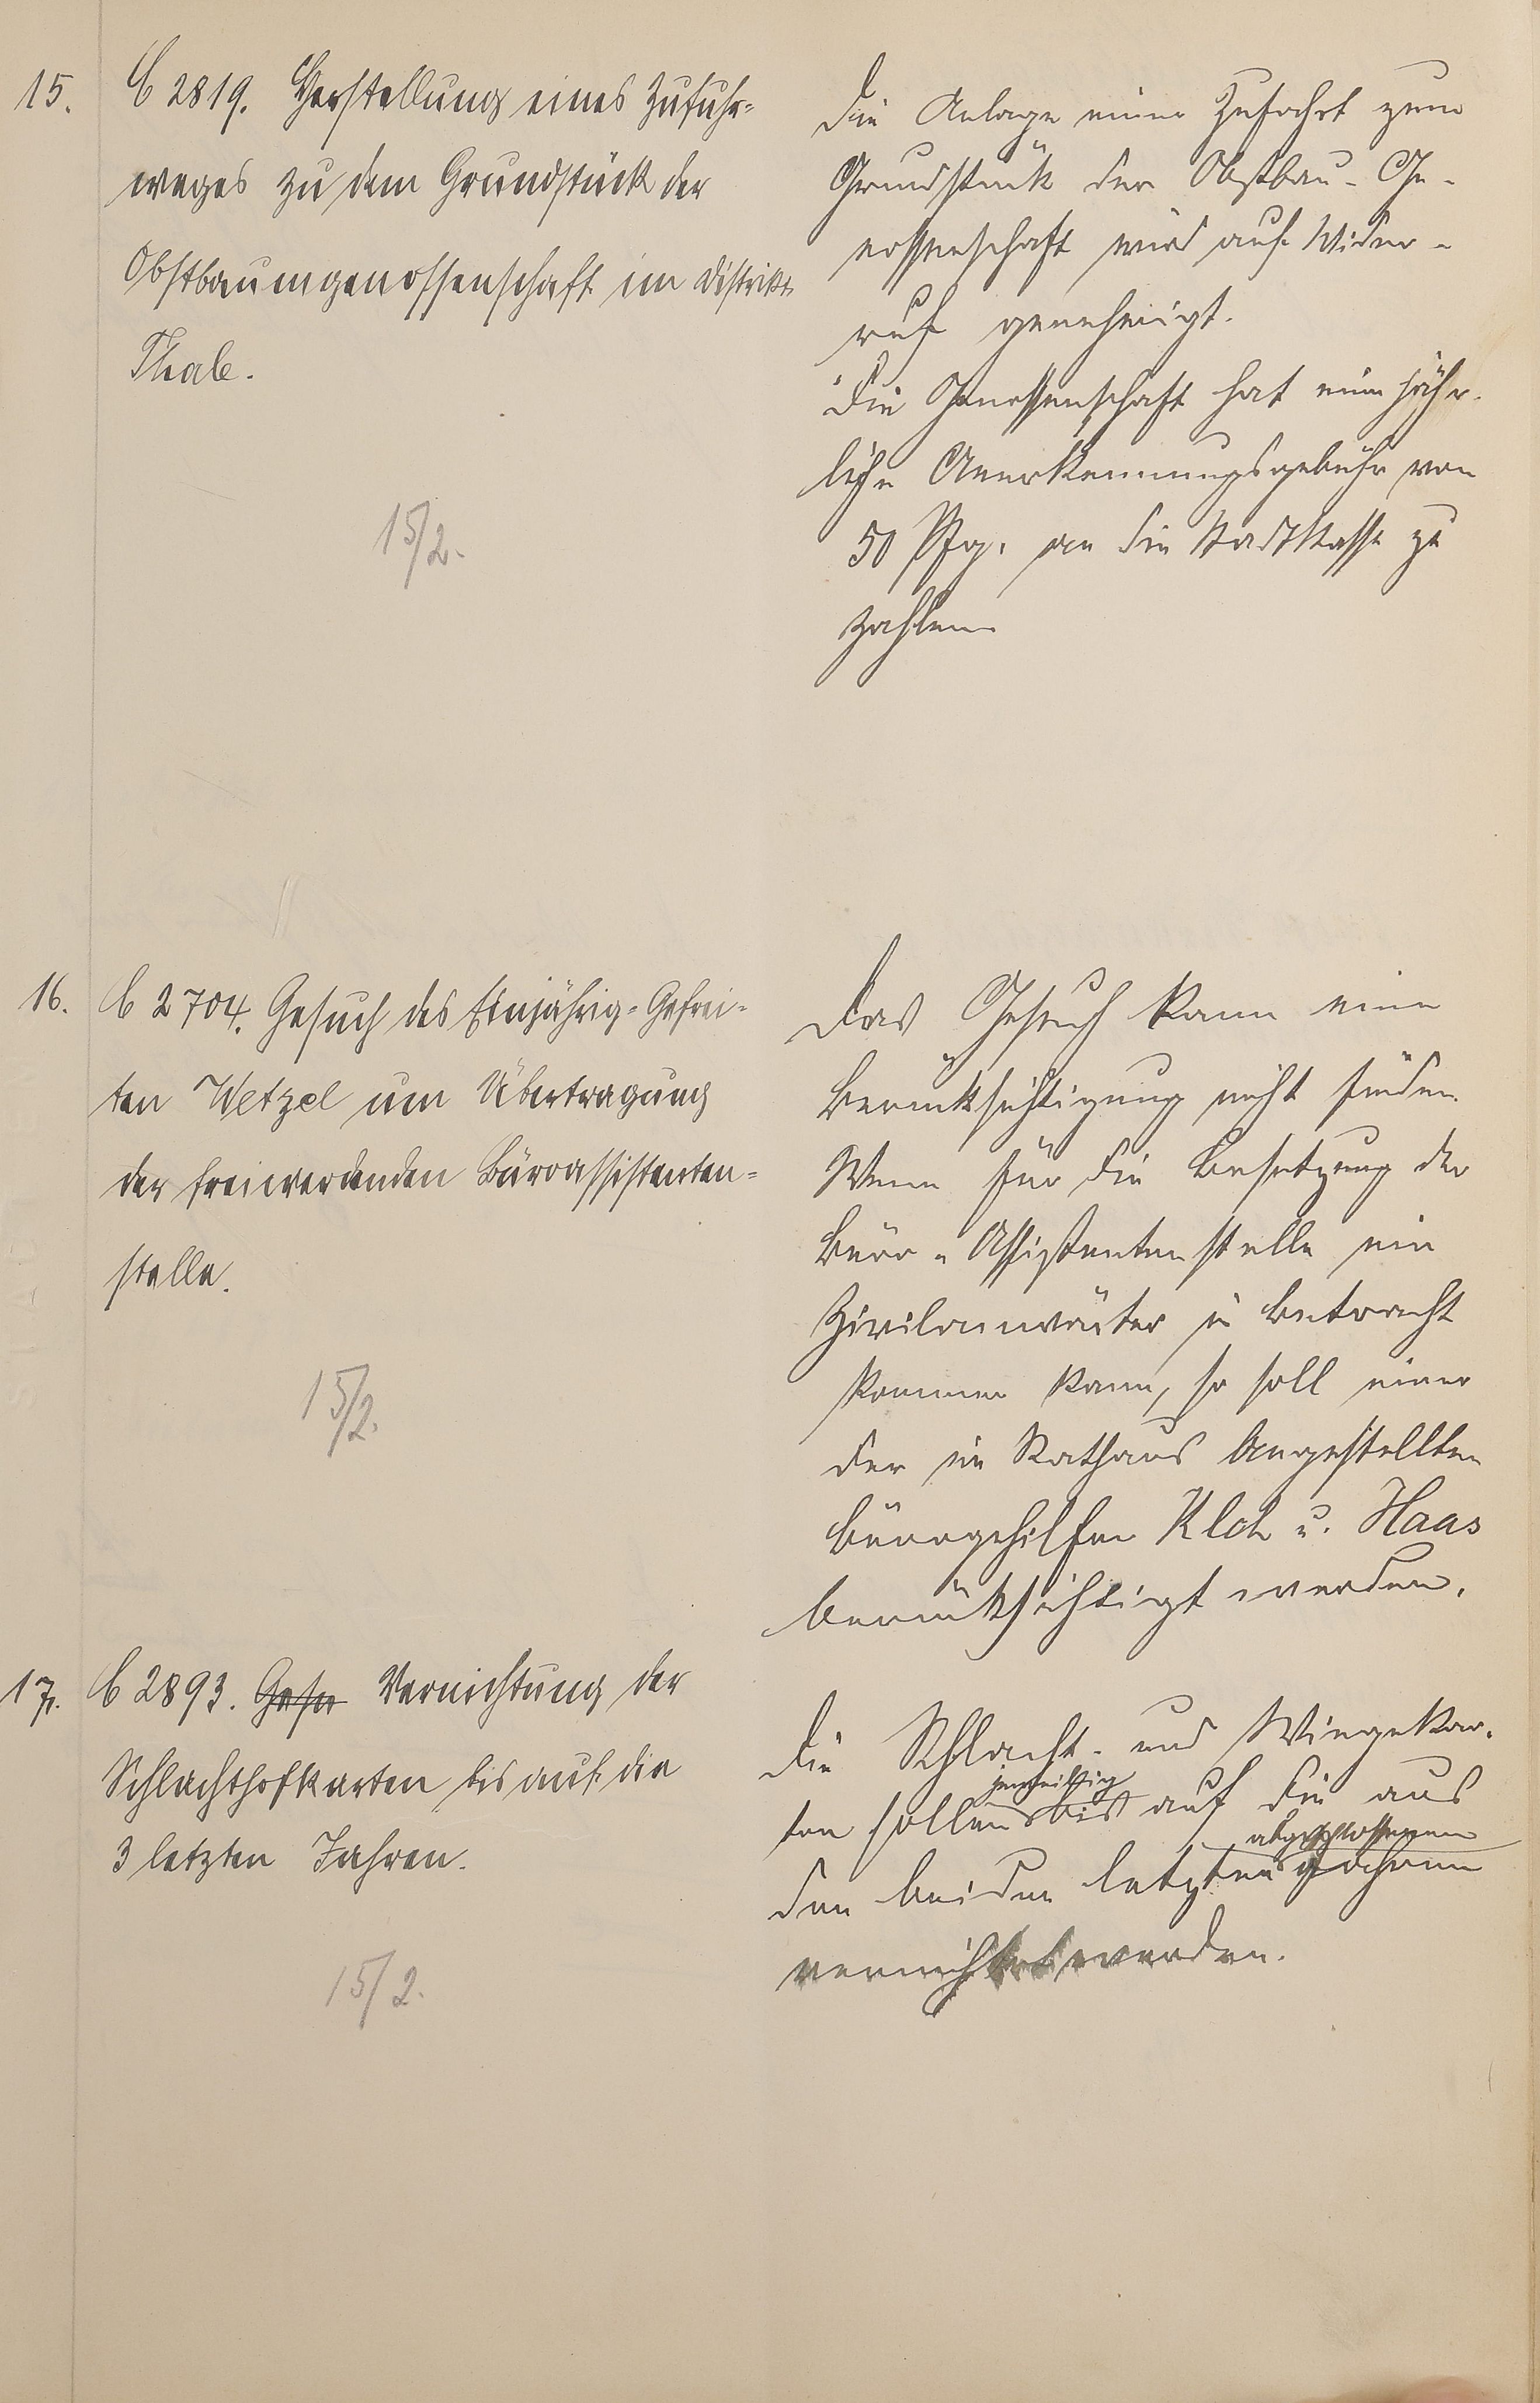 15.
C 2819. Herstellung eines Zufuhr=
weges zu dem Grundstück der
Obstbaumgenossenschaft im Distrikt
Thale.
15/2.
Die Anlage einer Zufahrt zum
Grundstück der Obstbau-Ge-
nossenschaft wird auf Wider-
ruf genehmigt.
Die Genossenschaft hat eine jähr-
liche Anerkennungsgebühr von
50 Pfg. an die Stadtkasse zu
zahlen
16.
C 2704. Gesuch des Einjährig=Gefrei-
ten Wetzel um Übertragung
der freiwerdenden Büroassistenten=
stelle.
15/2.
Das Gesuch kann eine
Berücksichtigung nicht finden.
Wenn für die Besetzung der
Büro-Assistentenstelle ein
Zivilanwärter in Betracht
kommen kann, so soll einer
der im Rathaus Angestellten
Bürogehilfen Klch u. Haas
berücksichtigt werden.
17.
C 2893. Gesu Vernichtung der
Schlachthofkarten bis auf die
3 letzten Jahren.
15/2.
Die Schlacht- und Wiegekar-
ten sollen bis auf die aus
abgeschlossenen
den beiden letzten Jahren
vernichtet werden.